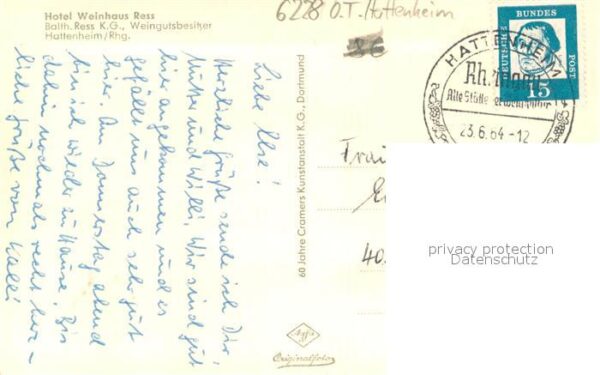 Hotel Weinhaus Ress
Balth. Ress K.G., Weingutsbesitzer
Hattenheim/Rhg.
6228 O.T. Hattenheim
36
Liebe Else!
Herzliche Grüße sende ich Dir,
Mutter und Willi. Wir sind gut
hier angekommen und es
gefällt uns auch sehr gut
hier. Am Donnerstag abend
bin ich wieder zu Hause. Bis
dahin nochmals recht herz-
liche Grüße von Kalli
60 Jahre Cramers Kunstanstalt K.G., Dortmund
Agfa
Originalfoto
DEUTSCHE
BUNDES
POST
15
HATTENHEIM
Rheingau
Alte Stätte
23.6.64-12
40
privacy protection
Datenschutz